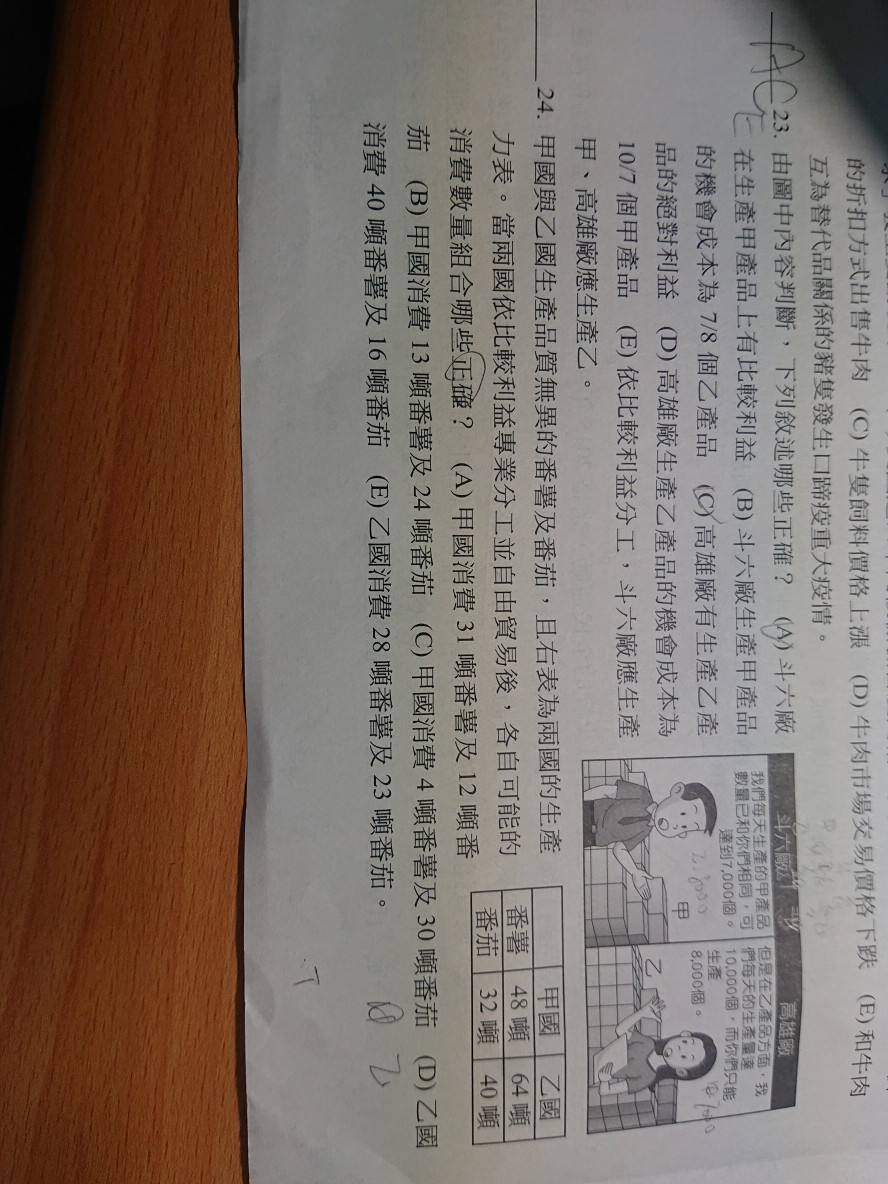 的折扣方式出售牛肉 (C) 牛隻飼料價格上漲 (D) 牛肉市場交易價格下跌 (E) 和牛肉
互為替代品關係的豬隻發生口蹄疫重大疫情。
AC 23. 由圖中內容判斷，下列敘述哪些正確？ (A) 斗六廠
在生產甲產品上有比較利益 (B) 斗六廠生產甲產品
的機會成本為 7/8 個乙產品 (C) 高雄廠有生產乙產
品的絕對利益 (D) 高雄廠生產乙產品的機會成本為
10/7 個甲產品 (E) 依比較利益分工，斗六廠應生產
甲、高雄廠應生產乙。
斗六廠
高雄廠
我們每天生產的甲產品
數量已和你們相同，可
達到7,000個。
甲
但是在乙產品方面，我
們每天的生產量達
10,000個，而你們只能
生產
8,000個。
乙
24. 甲國與乙國生產品質無異的番薯及番茄，且右表為兩國的生產
力表。當兩國依比較利益專業分工並自由貿易後，各自可能的
消費數量組合哪些正確？ (A) 甲國消費 31 噸番薯及 12 噸番
茄 (B) 甲國消費 13 噸番薯及 24 噸番茄 (C) 甲國消費 4 噸番薯及 30 噸番茄 (D) 乙國
消費 40 噸番薯及 16 噸番茄 (E) 乙國消費 28 噸番薯及 23 噸番茄。
甲國 乙國
番薯 48 噸 64 噸
番茄 32 噸 40 噸